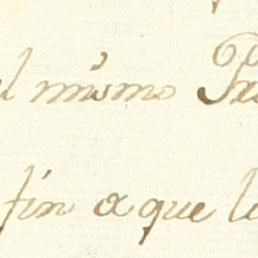 el mismo
fin a que